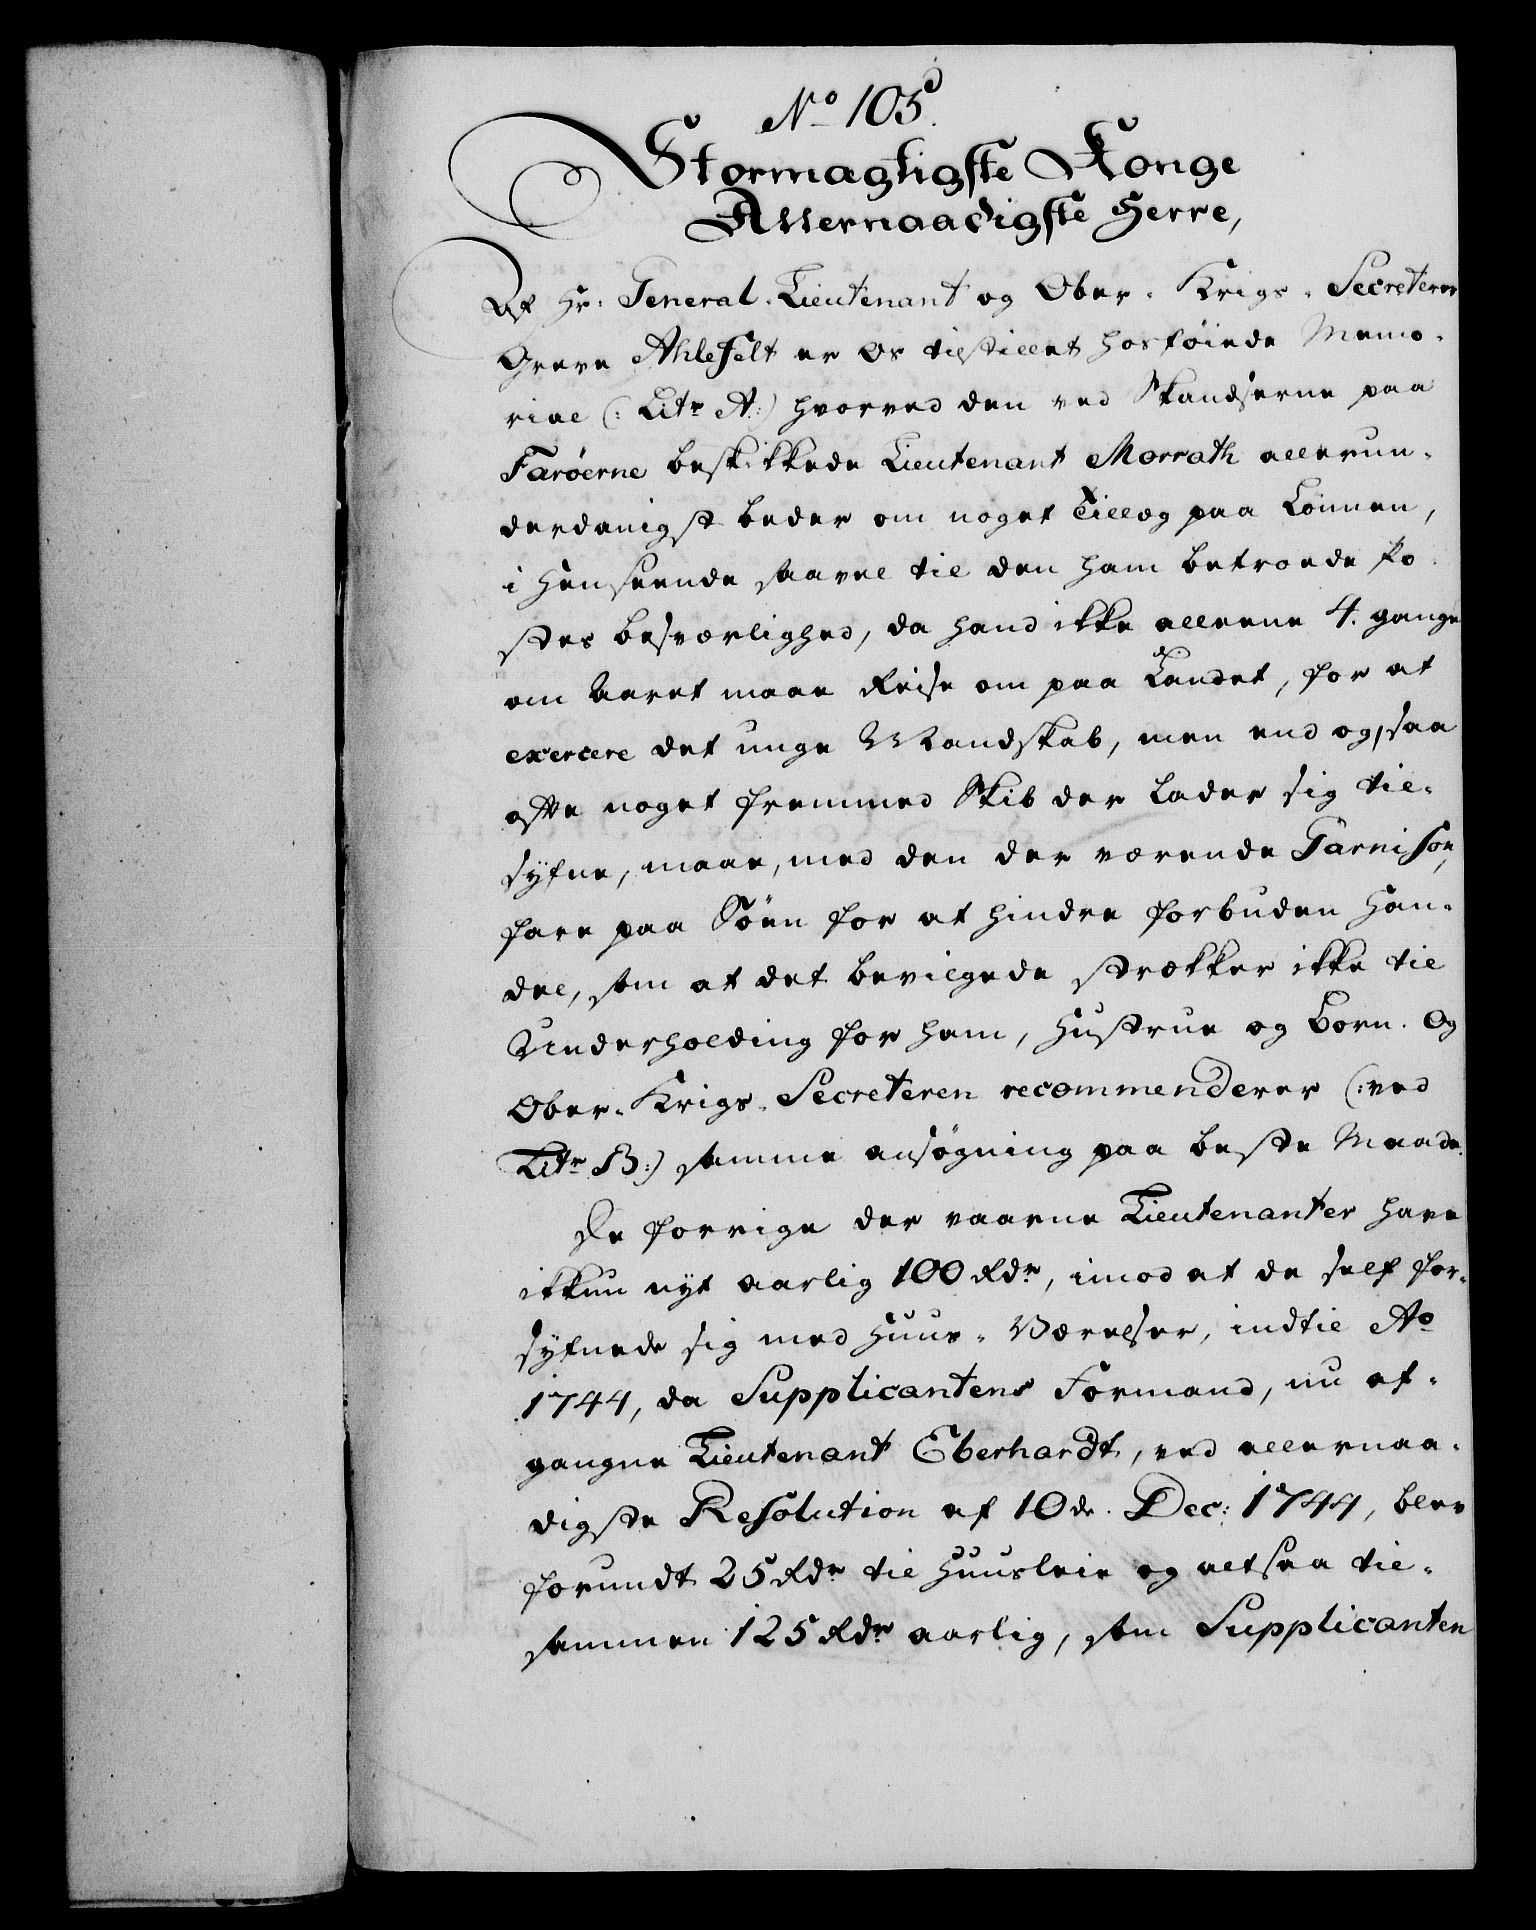 No 105.
Stormægtigste Konge
Allernaadigste Herre,
Af Hr: General-Lieutenant og Ober-Krigs-Secreteren
Greve Ahlefelt er os tilstillet hosføiede Memo-
rial (: Litr A:) hvorved den ved Skandserne paa
Færöerne beskikkede Lieutenant Morrath allerun-
derdanigst beder om noget Tillæg paa Lönnen,
i henseende saavel til den ham betroede Po-
stes besværlighed, da hand ikke alleene 4. gange
om Aaret maae Reise om paa Landet, for at
exercere det unge Mandskab, men end og, saa
ofte noget fremmed Skib der lader sig til-
syfne, maae, med den der værende Garnison,
fare paa Söen for at hindre forbuden Han-
del, som at det bevilgede strækker ikke til
Underholding for ham, Hustrue og Börn. Og
Ober-Krigs-Secreteren recommenderer (: ved
Litr B:) samme ansøgning paa beste Maade.
De forrige der vaarne Lieutenanter have
ikkun nyt aarlig 100 Rdr, imod at de self for-
syfnede sig med Huus-Værelser, indtil Ao
1744, da Supplicantens Formand, nu af-
gangne Lieutenant Eberhardt, ved allernaa-
digste Resolution af 10de Dec: 1744, blev
forundt 25 Rdr til Huusleie og altsaa til-
sammen 125 Rdr aarlig, som Supplicanten